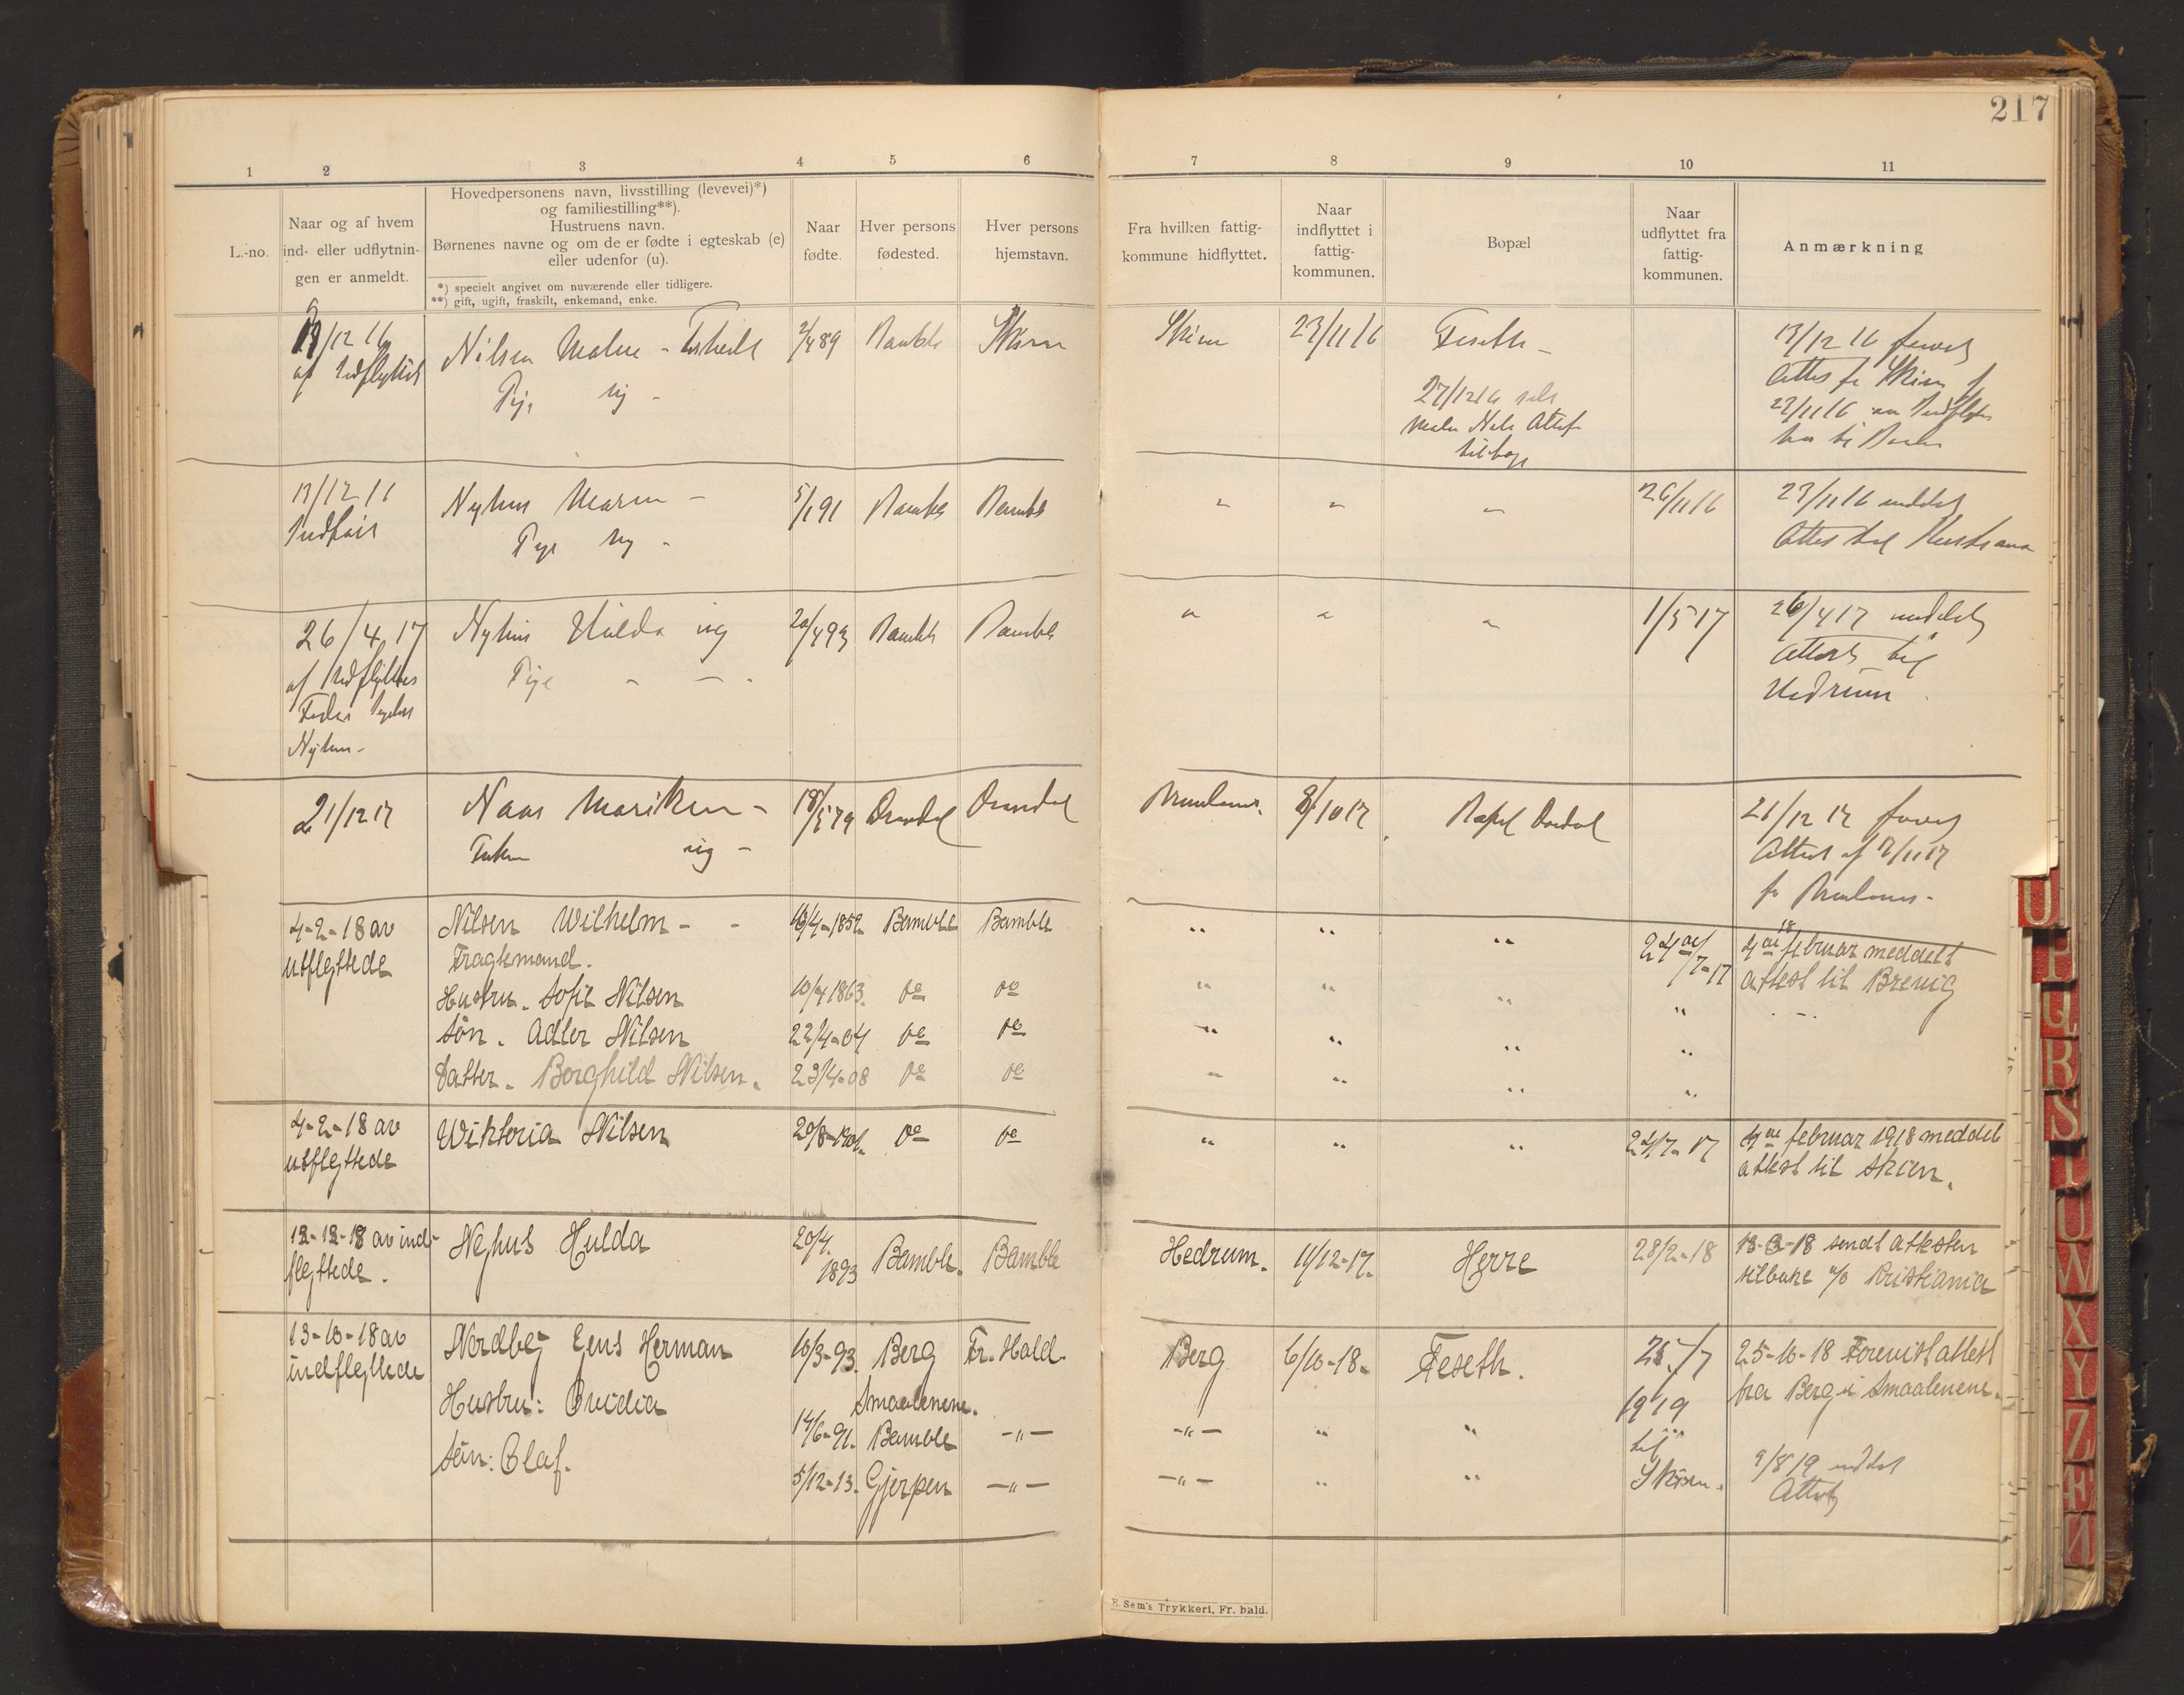 217
1 2 3 4 5 6 7 8 9 10 11
L.-no.
Naar og af hvem
ind- eller udflytnin-
gen er anmeldt.
Hovedpersonens navn, livsstilling (levevei)*)
og familiestilling**).
Hustruens navn.
Børnenes navne og om de er fødte i egteskab (e)
eller udenfor (u).
*) specielt angivet om nuværende eller tidligere.
**) gift, ugift, fraskilt, enkemand, enke.
Naar
fødte.
Hver persons
fødested.
Hver persons
hjemstavn.
Fra hvilken fattig-
kommune hidflyttet.
Naar
indflyttet i
fattig-
kommunen.
Bopæl
Naar
udflyttet fra
fattig-
kommunen.
Anmærkning
13/12 16
af Indflyttet
Nilsen Malene -
Pige ug -
2/4 89 Bamble Skien
Skien 23/11 16 Feseth -
27/12 16
Attest
tilbage
13/12 16
Attest fr Skien
23/11 16
13/12 16
Nyhus Maren -
Pige ug -
5/1 91 Bamble Bamble
" " " 26/11 16
23/11 16 meddelt
Attest til Kristiania
26/4 17
af Udflyttes
Fader
Nyhus -
Nyhus Hulda ug
Pige - - -
20/4 93 Bamble Bamble
" " " 1/5 17
26/4 17 meddelt
Attest til
Hedrum
21/12 17
Naas Mariken -
ug -
18/5 79 Drandal Drandal
Brunlanes. 8/10 17
21/12 17
Attest af 12/11 17
fr Brunlanes -
4-2-18 av
utflyttede
Nilsen Wilhelm - -
Fragtemand.
Hustru. Sofie Nilsen
Søn. Adler Nilsen
Datter. Borghild Nilsen.
16/4-1852 Bamble Bamble
10/4 1863. do do
22/4-04 do do
23/4-08 do do
" " " 24/7-17
4de februar 18 meddelt
attest til Brevig
4-2-18 av
utflyttede
Wiktoria Nilsen
20/8-1901. do do
" " " 24/7-17
4de februar 1918 meddelt
attest til Skien.
12-12-18 av ind-
flyttede.
Nyhus Hulda
20/4.
1893 Bamble. Bamble
Hedrum. 11/12-17. Herre 28/2-18
18-3-18 sendt attesten
tilbake Kristiania
13-10-18 av
indflyttede
Nordby Jens Herman
Hustru: Ovidia
Søn: Olaf.
16/3-93. Berg Fr. Hald.
Smaalenene.
14/6-91. Bamble -"-
5/12-13. Gjerpen -"-
Berg 6/10-18. Feseth.
-"- " "
-"- " "
25/7
1919
til
Skien.
25-10-18 Forevist attest
fra Berg i Smaalenene.
9/8 19 meddelt
Attest
E. Sem's Trykkeri, Fr. hald.
U
P
Q
R
S
T
U
W
X
Y
Z
Æ
Ø